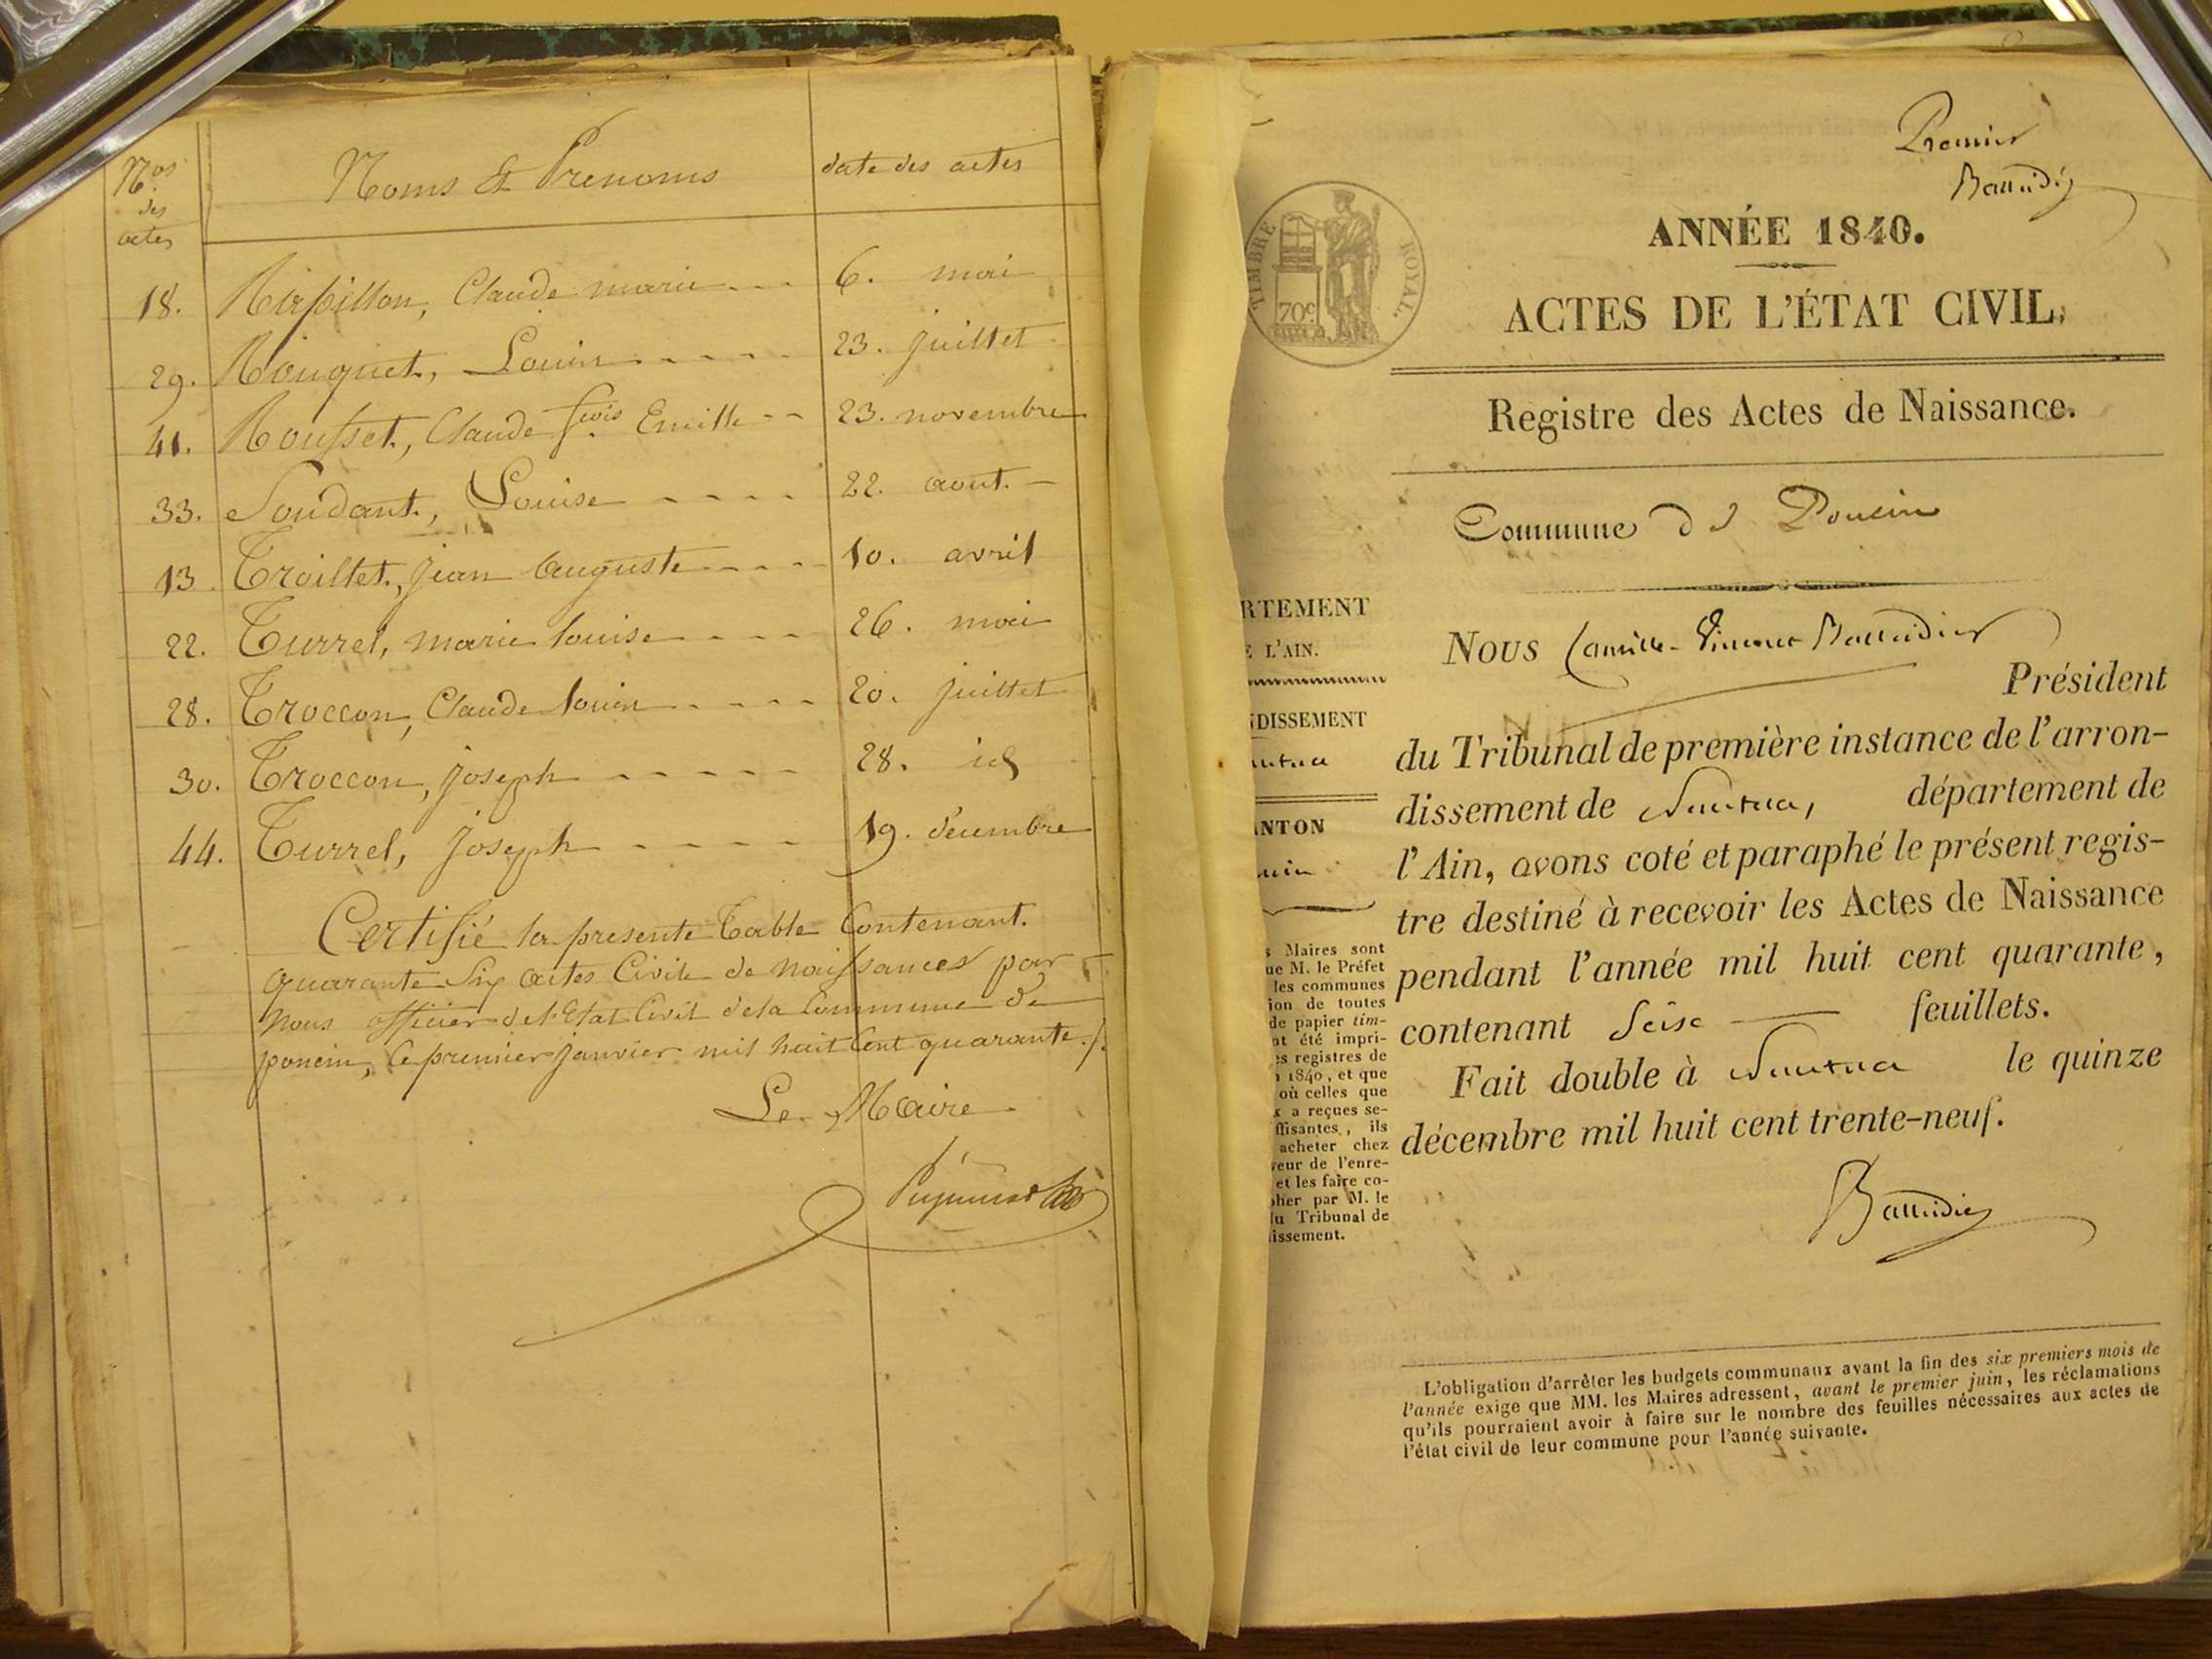 Nos des actes
Noms et Prenoms
date des actes
18. Rirpillon, Claude marie 6. mai
29. Rouquet, Louis 23. juillet
41. Rousset, Claude fcois Emille 23. novembre
33. Soudant, Louise 22. aout.
13. Troillet, jean auguste 10. avril
22. Turrel, marie louise 26. mai
28. Troccon, Claude louis 20. juillet
30. Troccon, joseph 28. id
44. Turrel, joseph 19. decembre
Certifié la presente Table Contenant.
quarante Six actes Civils de naissances par
nous officier de l'Etat Civil de la Commune de
poncin, le premier janvier mil huit Cent quarante ./.
Le Maire
Premier
Baudi
ANNÉE 1840.
TIMBRE ROYAL.
70c.
ACTES DE L'ÉTAT CIVIL.
Registre des Actes de Naissance.
Commune de Poncin
RTEMENT
E L'AIN.
DISSEMENT
antua
ANTON
ncin
s Maires sont
ue M. le Préfet
les communes
ion de toutes
de papier tim-
nt été impri-
es registres de
1840, et que
où celles que
x a reçues se-
ffisantes, ils
acheter chez
veur de l'enre-
et les faire co-
pher par M. le
du Tribunal de
issement.
Nous Camille-Vincent
Président
du Tribunal de première instance de l'arron-
dissement de Nantua, département de
l'Ain, avons coté et paraphé le présent regis-
tre destiné à recevoir les Actes de Naissance
pendant l'année mil huit cent quarante,
contenant Seise feuillets.
Fait double à Nantua le quinze
décembre mil huit cent trente-neuf.
L'obligation d'arrêter les budgets communaux avant la fin des six premiers mois de
l'année exige que MM. les Maires adressent, avant le premier juin, les réclamations
qu'ils pourraient avoir à faire sur le nombre des feuilles nécessaires aux actes de
l'état civil de leur commune pour l'année suivante.